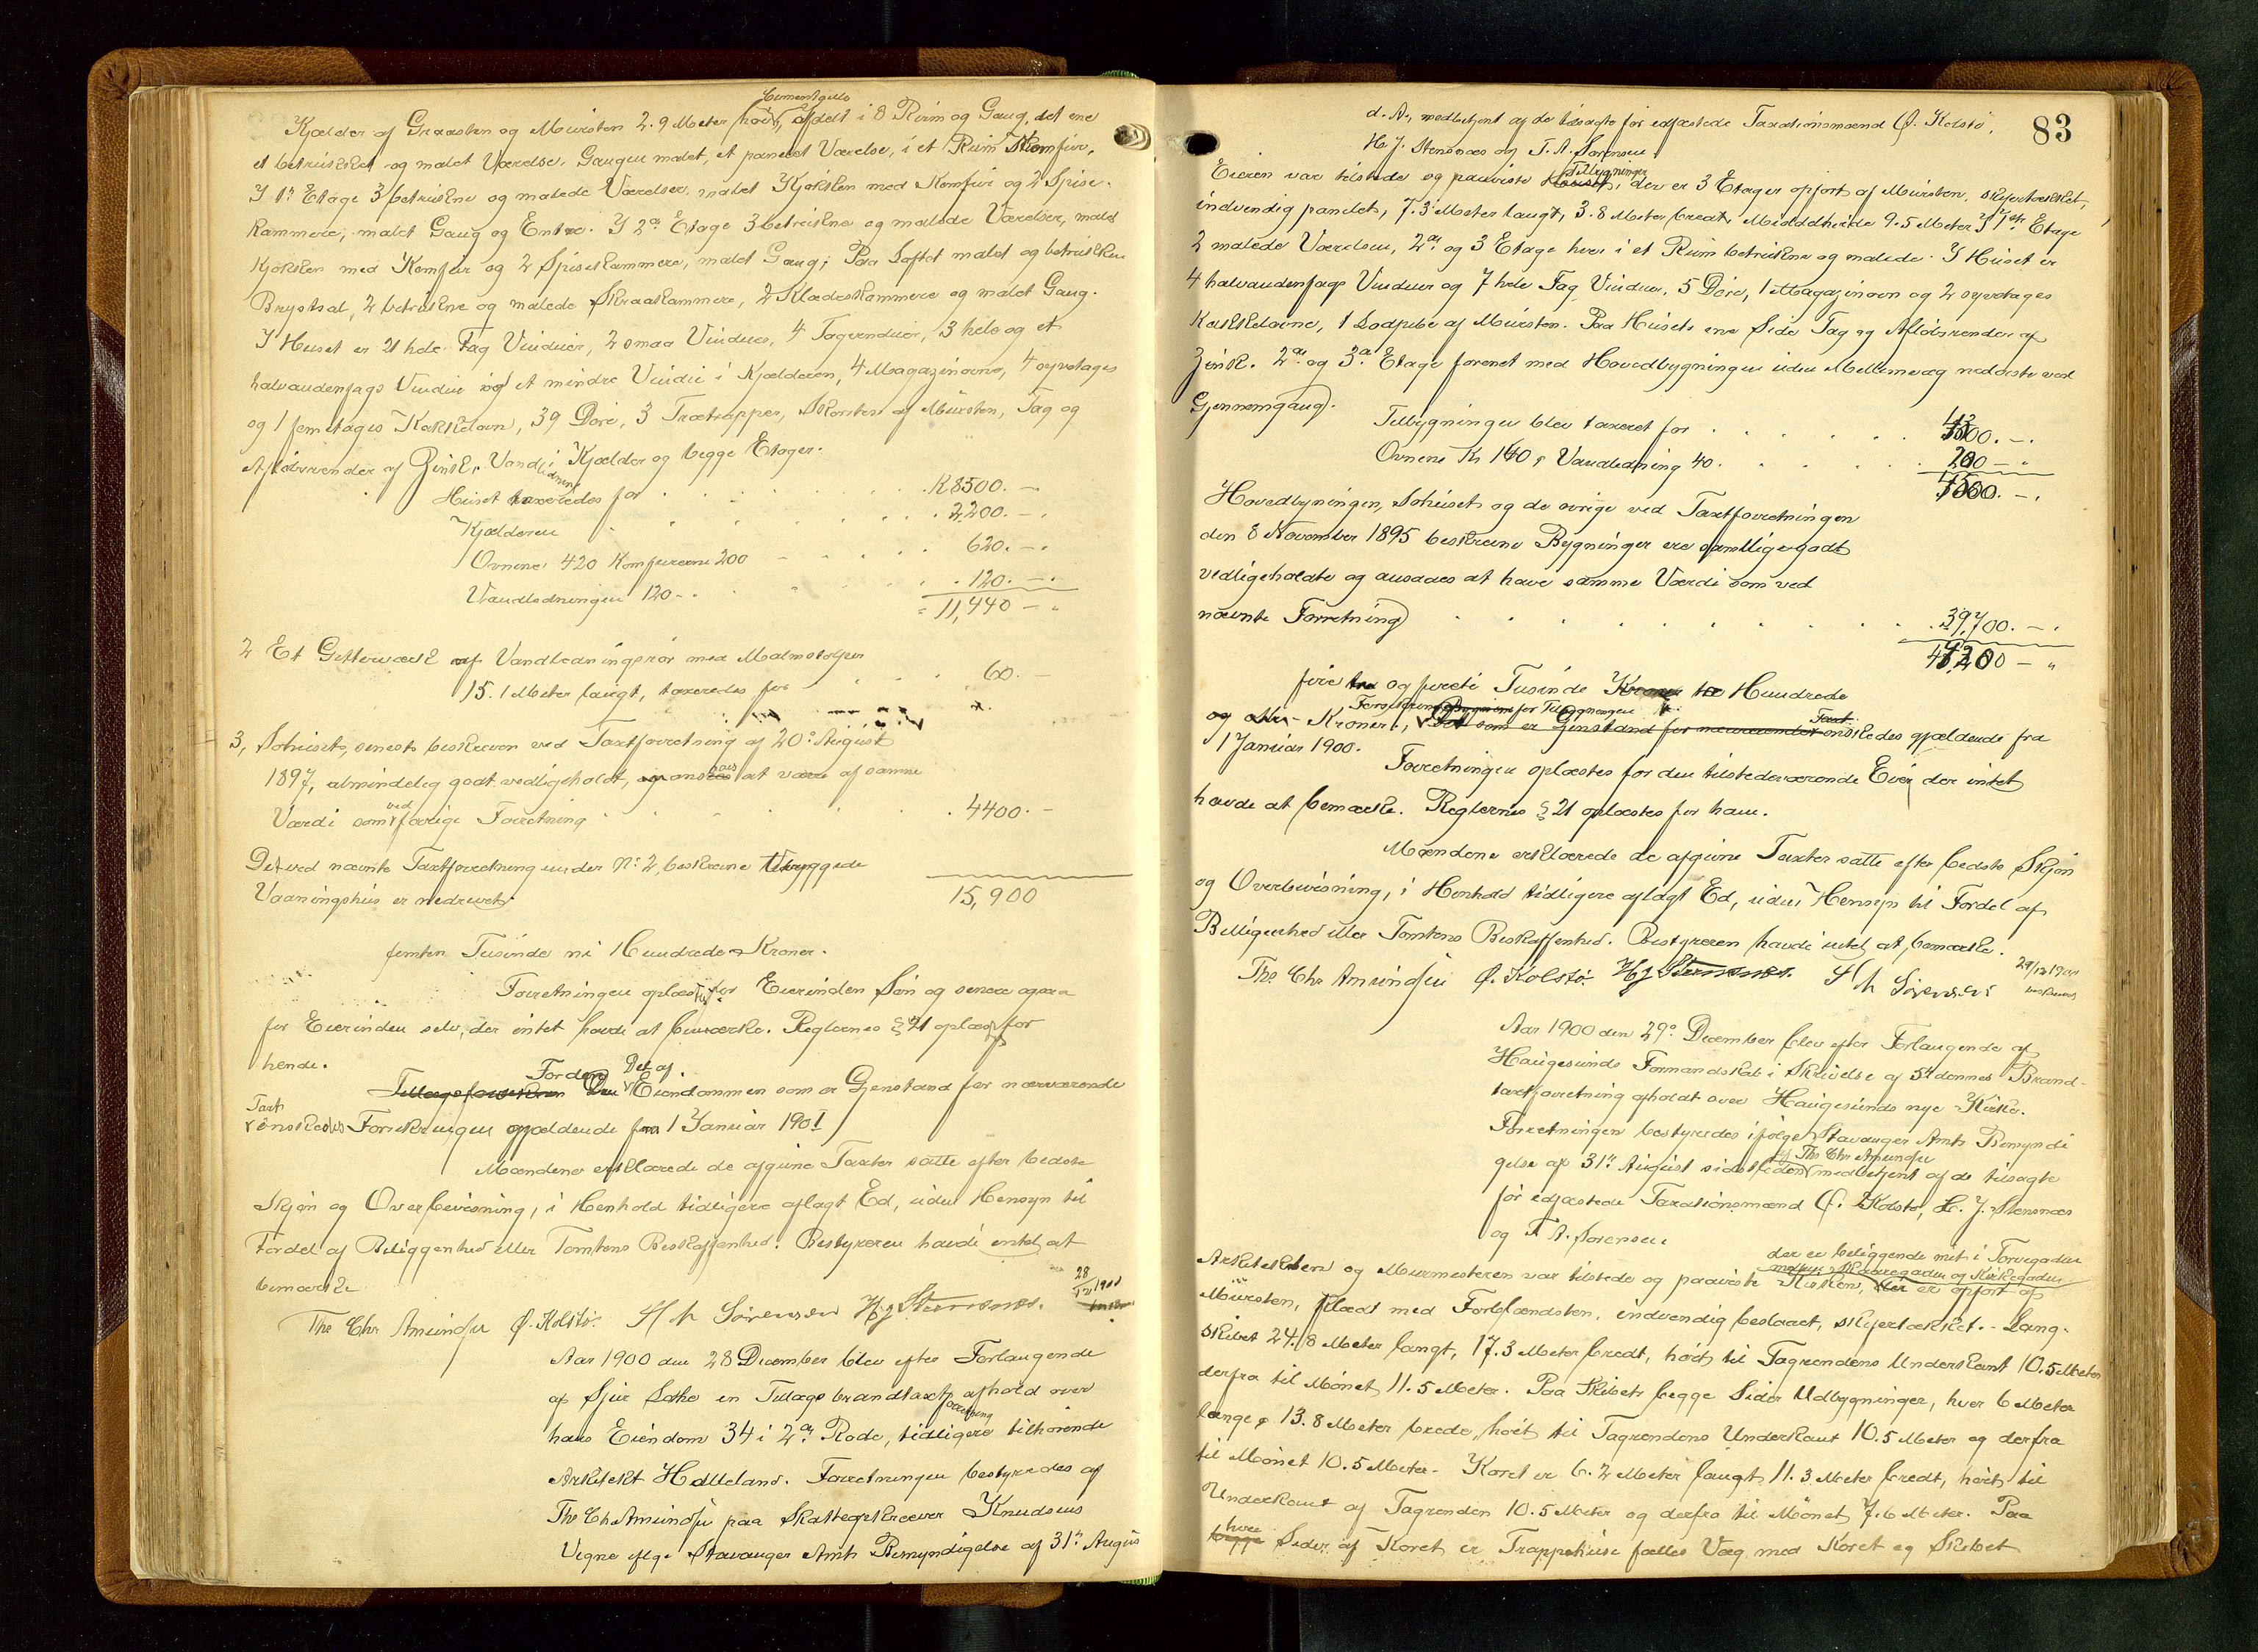 Cementgulv
Kjælder af Graasten og Mursten 2.9 Meter høit, afdelt i 8 Rum og Gang, det ene
et betrukket og malet Værelse. Gangen malet, et panelet Værelse, i et Rum Komfur,
I 1ste Etage 3 betrukne og malede Værelser, malet Kjøkken med Komfur og 2 Spise-
kammere, malet Gang og Entre. I 2den Etage 3 betrukne og malede Værelser, malet
Kjøkken med Komfur og 2 Spisekammere, malet Gang; Paa Loftet malet og betrukken
Brystsal, 2 betrukne og malede Skraakammere, 2 Klædeskammere og malet Gang.
I Huset er 21 hele Fag Vinduer, 2 smaa Vinduer, 4 Tagvinduer, 3 hele og et
halvandenfags Vindue og et mindre Vindue i Kjælderen, 4 Magazinovne, 4 syvetages
og 1 femetages Kakkelovn, 39 Døre, 3 Trætrapper, Skorsten af Mursten, Tag og
Afløbsrender af Zink. Vandledning i Kjælder og begge Etager.
Huset taxeredes for K 8500. –
Kjælderen 2,200. –
Ovnene 420 Komfurerne 200 620. –
Vandledningen 120 – 120. –
11,440 –
2 Et Gitterværk af Vandledningsrør med Malmstolper
15.1 Meter langt, taxeredes for 60. –
3, Søhuset, senest beskreven ved Taxtforretning af 20de August
1897, almindelig godt vedligeholdt, ansaaes at være af samme
Værdi som ved forrige Forretning 4400. –
Det ved nævnte Taxtforretning under No 2 beskrevne tilbyggede
Vaaningshus er nedrevet. 15,900
femten Tusinde ni Hundrede Kroner.
Forretningen oplæstes for Eierinden Søn og senere ogsaa
for Eierinden selv, der intet havde at bemærke. Reglernes § 21 oplæstes for
hende.
Forderes Det af
Tillægsforsikren Den Eiendommen som er Gjenstand for nærværende
Taxt
ønskedes Forsikringen gjældende fra 1 Januar 1901
Mændene erklærede de afgivne Taxter satte efter bedste
Skjøn og Overbevisning, i Henhold tidligere aflagt Ed, uden Hensyn til
Fordel af Beliggenhed eller Tomtens Beskaffenhed. Bestyreren havde intet at
bemærke
28/12 1900
Ths Chr Amundsen Ø. Kolstø. T A Sørensen H J Stensnæs.
Aar 1900 den 28 December blev efter Forlangende
af Sjur Lothe en Tillægsbrandtaxtforretning afhold over
hans Eiendom 34 i 2den Rode, tidligere tilhørende
Arkitekt Halleland. Forretningen bestyredes af
Ths Chr Amundsen paa Skatteopkræver Knudsens
Vegne iflge Stavanger Amts Bemyndigelse af 31te Augus
83
d. A., medbetjent af de tilsagte før edfæstede Taxationsmænd Ø. Kolstø,
H. J. Stensnæs og T. A. Sørensen.
Tilbygningen
Eieren var tilstede og paaviste Huset, der er 3 Etager opført af Mursten, skifertækket,
indvendig panelet, 7.3 Meter langt, 3.8 Meter bredt, Middelhøide 9.5 Meter I 1ste Etage
2 malede Værelser, 2den og 3 Etage hver i et Rum betrukne og malede. I Huset er
4 halvandenfags Vinduer og 7 hele Fag Vinduer, 5 Døre, 1 Magazinovn og 2 syvetages
Kakkelovne, 1 Lodpibe af Mursten. Paa Husets ene Side Tag og Afløbsrender af
Zink. 2den og 3die Etage forenet med Hovedbygningen uden Mellemvæg nederste ved
Gjennemgang.
Tilbygningen blev taxeret for 4300. –
Ovnene Kr 160, Vandledning 40. 200 –
4500. –
Hovedbyningen, Søhuset og de øvrige ved Taxtforretningen
den 8 November 1895 beskrevne Bygninger ere samtlige godt
vedligeholdte og ansaaes at have samme Værdi som ved
nævnte Forretning 39,700. –
–
fire og førti Tusinde Kroner to Hundrede
Forsikringssummen for Tilbygningen
og Kroner, Det som er Gjenstand for nærværende Taxt ønskedes gjældende fra
1 Januar 1900.
Forretningen oplæstes for den tilstedeværende Eier, der intet
havde at bemærke. Reglernes § 21 oplæstes for ham.
Mændene erklærede de afgivne Taxter satte efter bedste Skjøn
og Overbevisning, i Henhold tidligere aflagt Ed, uden Hensyn til Fordel af
Beliggenhed eller Tomtens Beskaffenhed. Bestyreren havde intet at bemærke.
Ths Chr Amundsen Ø. Kolstø. H J Stensnæs. T A Sørensen 29/12 1900
Aar 1900 den 29de December blev efter Forlangende af
Haugesunds Formandskab i Skrivelse af 5te dennes Brand-
taxtforretning afholdt over Haugesunds nye Kirke.
Forretningen bestyredes ifølge Stavanger Amts Bemyndi
gelse af 31te August sidstleden af Ths Chr Amundsen medbetjent af de tilsagte
før edfæstede Taxationsmænd Ø. Kolstø, H. J. Stensnæs
og T. A. Sørensen.
der er beliggende mit i Torvegaden
mellem Skaaregaden og Kirkegaden
Arkitekten og Murmesteren var tilstede og paaviste Kirken, der er opført af
Mursten, klædt med Forblændsten, indvendig beslaaet, skifertækket. – Lang-
skibet 24.8 Meter langt, 17.3 Meter bredt, høit til Tagrendens Underkant 10.5 Meter
derfra til Mønet 11.5 Meter. Paa Skibets begge Sider Udbygninger, hver 6 Meter
lange, 13.8 Meter brede, høit til Tagrendens Underkant 10.5 Meter og derfra
til Mønet 10.5 Meter. Koret er 6.2 Meter langt 11.3 Meter bredt, høit til
Underkant af Tagrenden 10.5 Meter og derfra til Mønet 7.6 Meter. Paa
hver
begge Sider af Koret er Trappehuse fælles Væg med Koret og Skibet